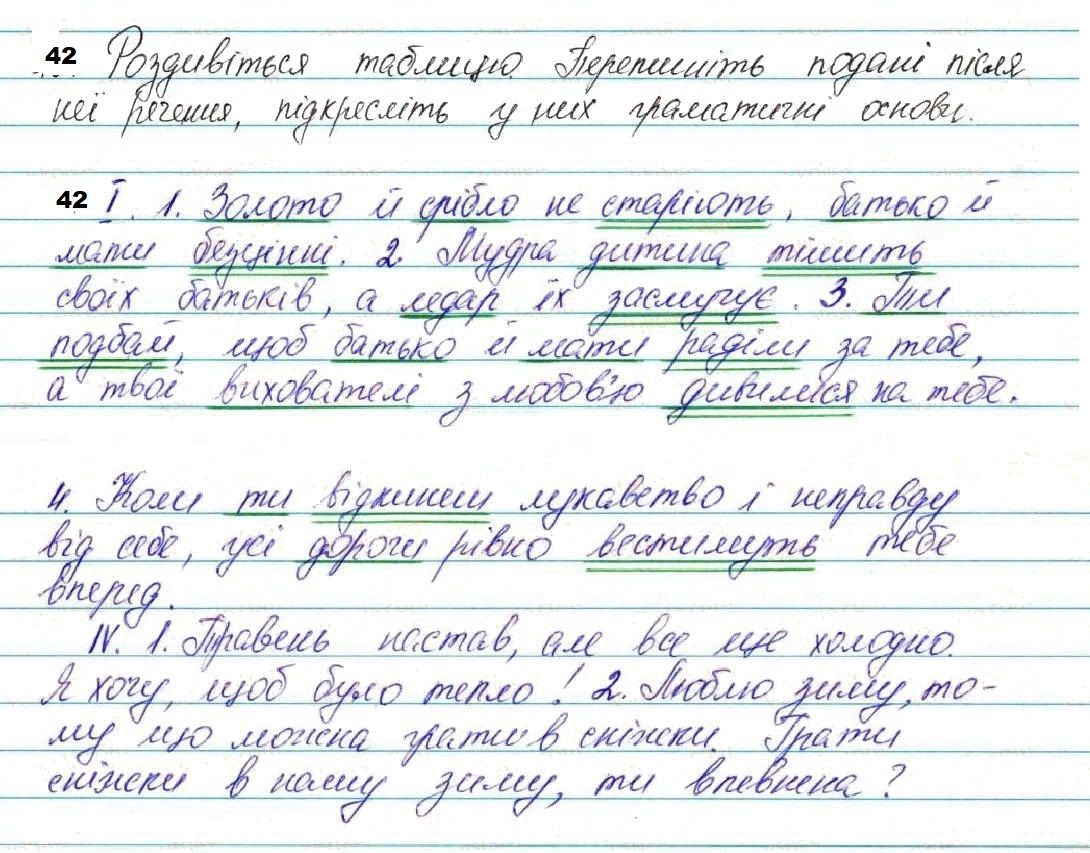 42 Роздивіться таблицю. Перепишіть подані після
неї речення, підкресліть у них граматичні основи.
42 I. 1. Золото й срібло не старіють, батько й
мати безцінні. 2. Мудра дитина тішить
своїх батьків, а ледар їх засмучує. 3. Ти
подбай, щоб батько й мати раділи за тебе,
а твої вихователі з любов'ю дивилися на тебе.
4. Коли ти відкинеш лукавство і неправду
від себе, усі дороги рівно вестимуть тебе
вперед.
IV. 1. Травень настав, але все ще холодно.
Я хочу, щоб було тепло! 2. Люблю зиму, то-
му що можна грати в сніжки. Грати
сніжки в нашу зиму, ти впевнена?